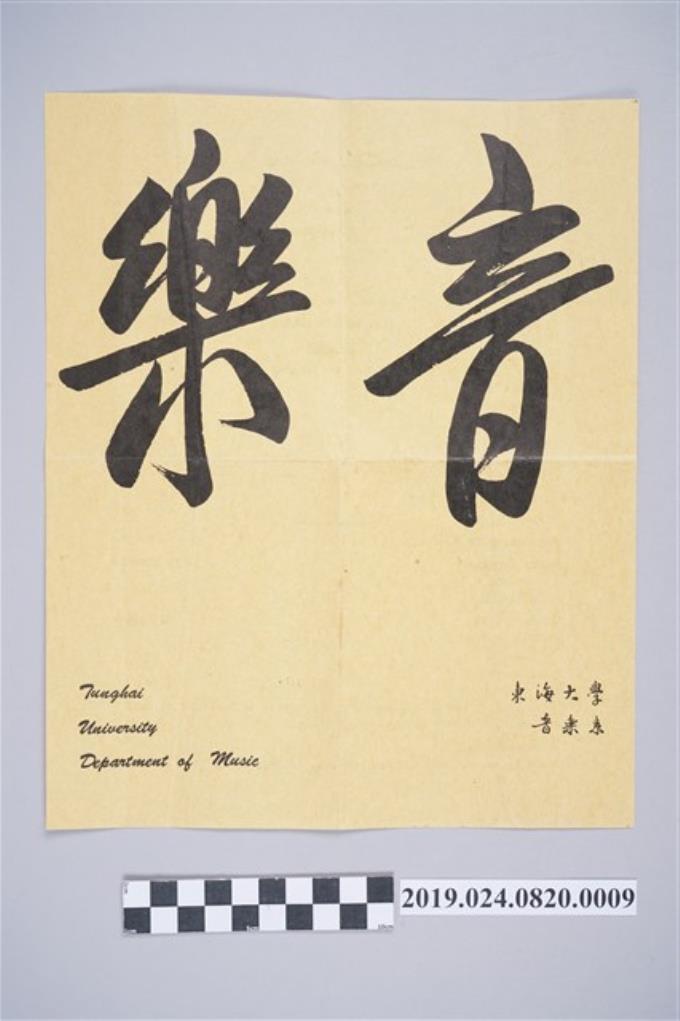 音樂
Tunghai
University
Department of Music
東海大學
音樂系
2019.024.0820.0009